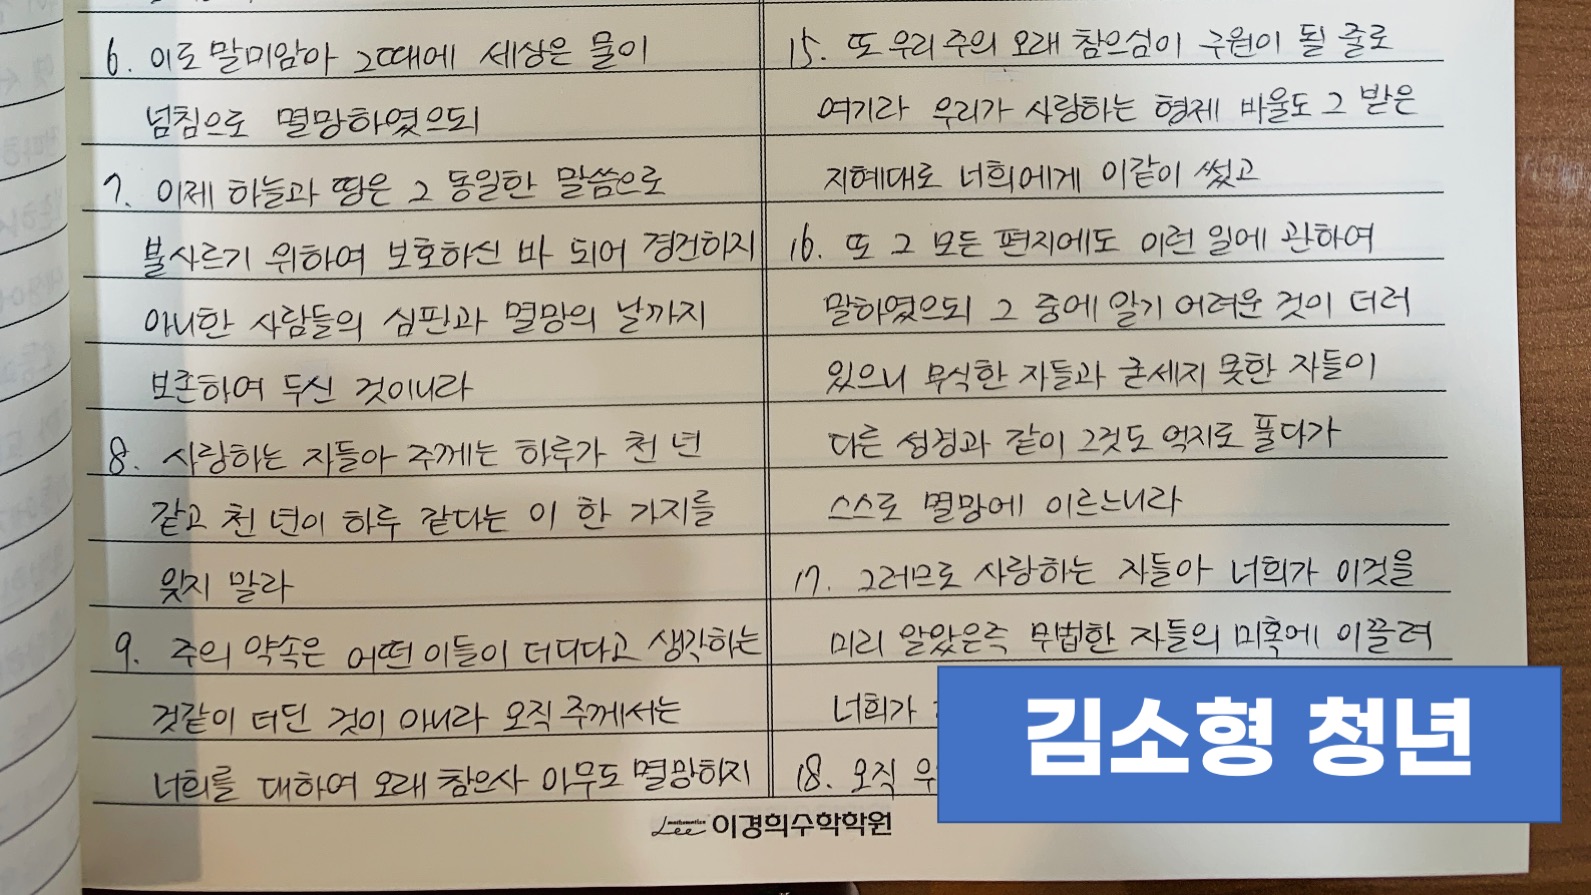 6. 이로 말미암아 그때에 세상은 물이
넘침으로 멸망하였으되
7. 이제 하늘과 땅은 그 동일한 말씀으로
불사르기 위하여 보호하신 바 되어 경건하지
아니한 사람들의 심판과 멸망의 날까지
보존하여 두신 것이니라
8. 사랑하는 자들아 주께는 하루가 천 년
같고 천 년이 하루 같다는 이 한 가지를
잊지 말라
9. 주의 약속은 어떤 이들이 더디다고 생각하는
것같이 더딘 것이 아니라 오직 주께서는
너희를 대하여 오래 참으사 아무도 멸망하지
15. 또 우리 주의 오래 참으심이 구원이 될 줄로
여기라 우리가 사랑하는 형제 바울도 그 받은
지혜대로 너희에게 이같이 썼고
16. 또 그 모든 편지에도 이런 일에 관하여
말하였으되 그 중에 알기 어려운 것이 더러
있으니 무식한 자들과 굳세지 못한 자들이
다른 성경과 같이 그것도 억지로 풀다가
스스로 멸망에 이르느니라
17. 그러므로 사랑하는 자들아 너희가 이것을
미리 알았은즉 무법한 자들의 미혹에 이끌려
너희가
18. 오직 우
김소형 청년
Lee mathematics 이경희수학학원